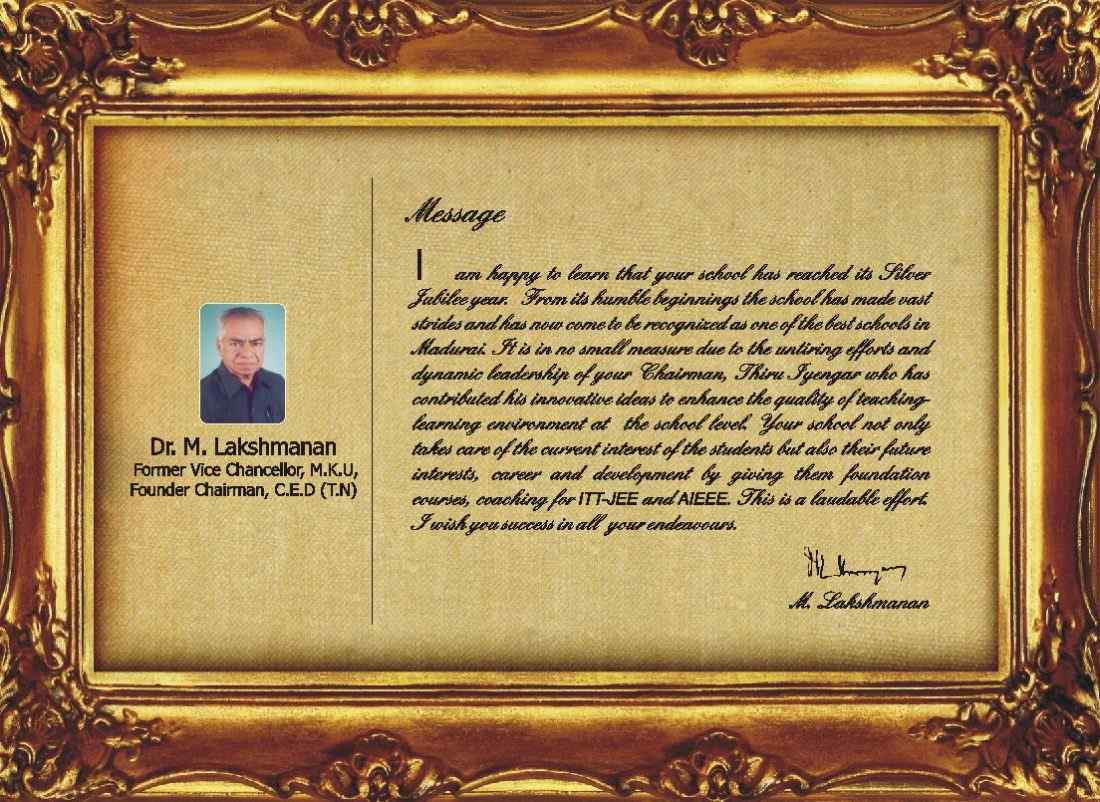 Dr. M. Lakshmanan
Former Vice Chancellor, M.K.U,
Founder Chairman, C.E.D (T.N)
Message
I am happy to learn that your school has reached its Silver
Jubilee year. From its humble beginnings the school has made vast
strides and has now come to be recognized as one of the best schools in
Madurai. It is in no small measure due to the untiring efforts and
dynamic leadership of your Chairman, Thiru Iyengar who has
contributed his innovative ideas to enhance the quality of teaching-
learning environment at the school level. Your school not only
takes care of the current interest of the students but also their future
interests, career and development by giving them foundation
courses, coaching for ITT-JEE and AIEEE. This is a laudable effort.
I wish you success in all your endeavours.
M. Lakshmanan